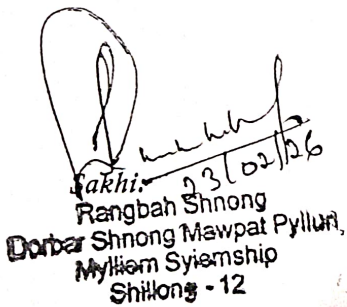 Sakhi:
23/02/26
Rangbah Shnong
Dorbar Shnong Mawpat Pyllun,
Mylliem Syiemship
Shillong - 12